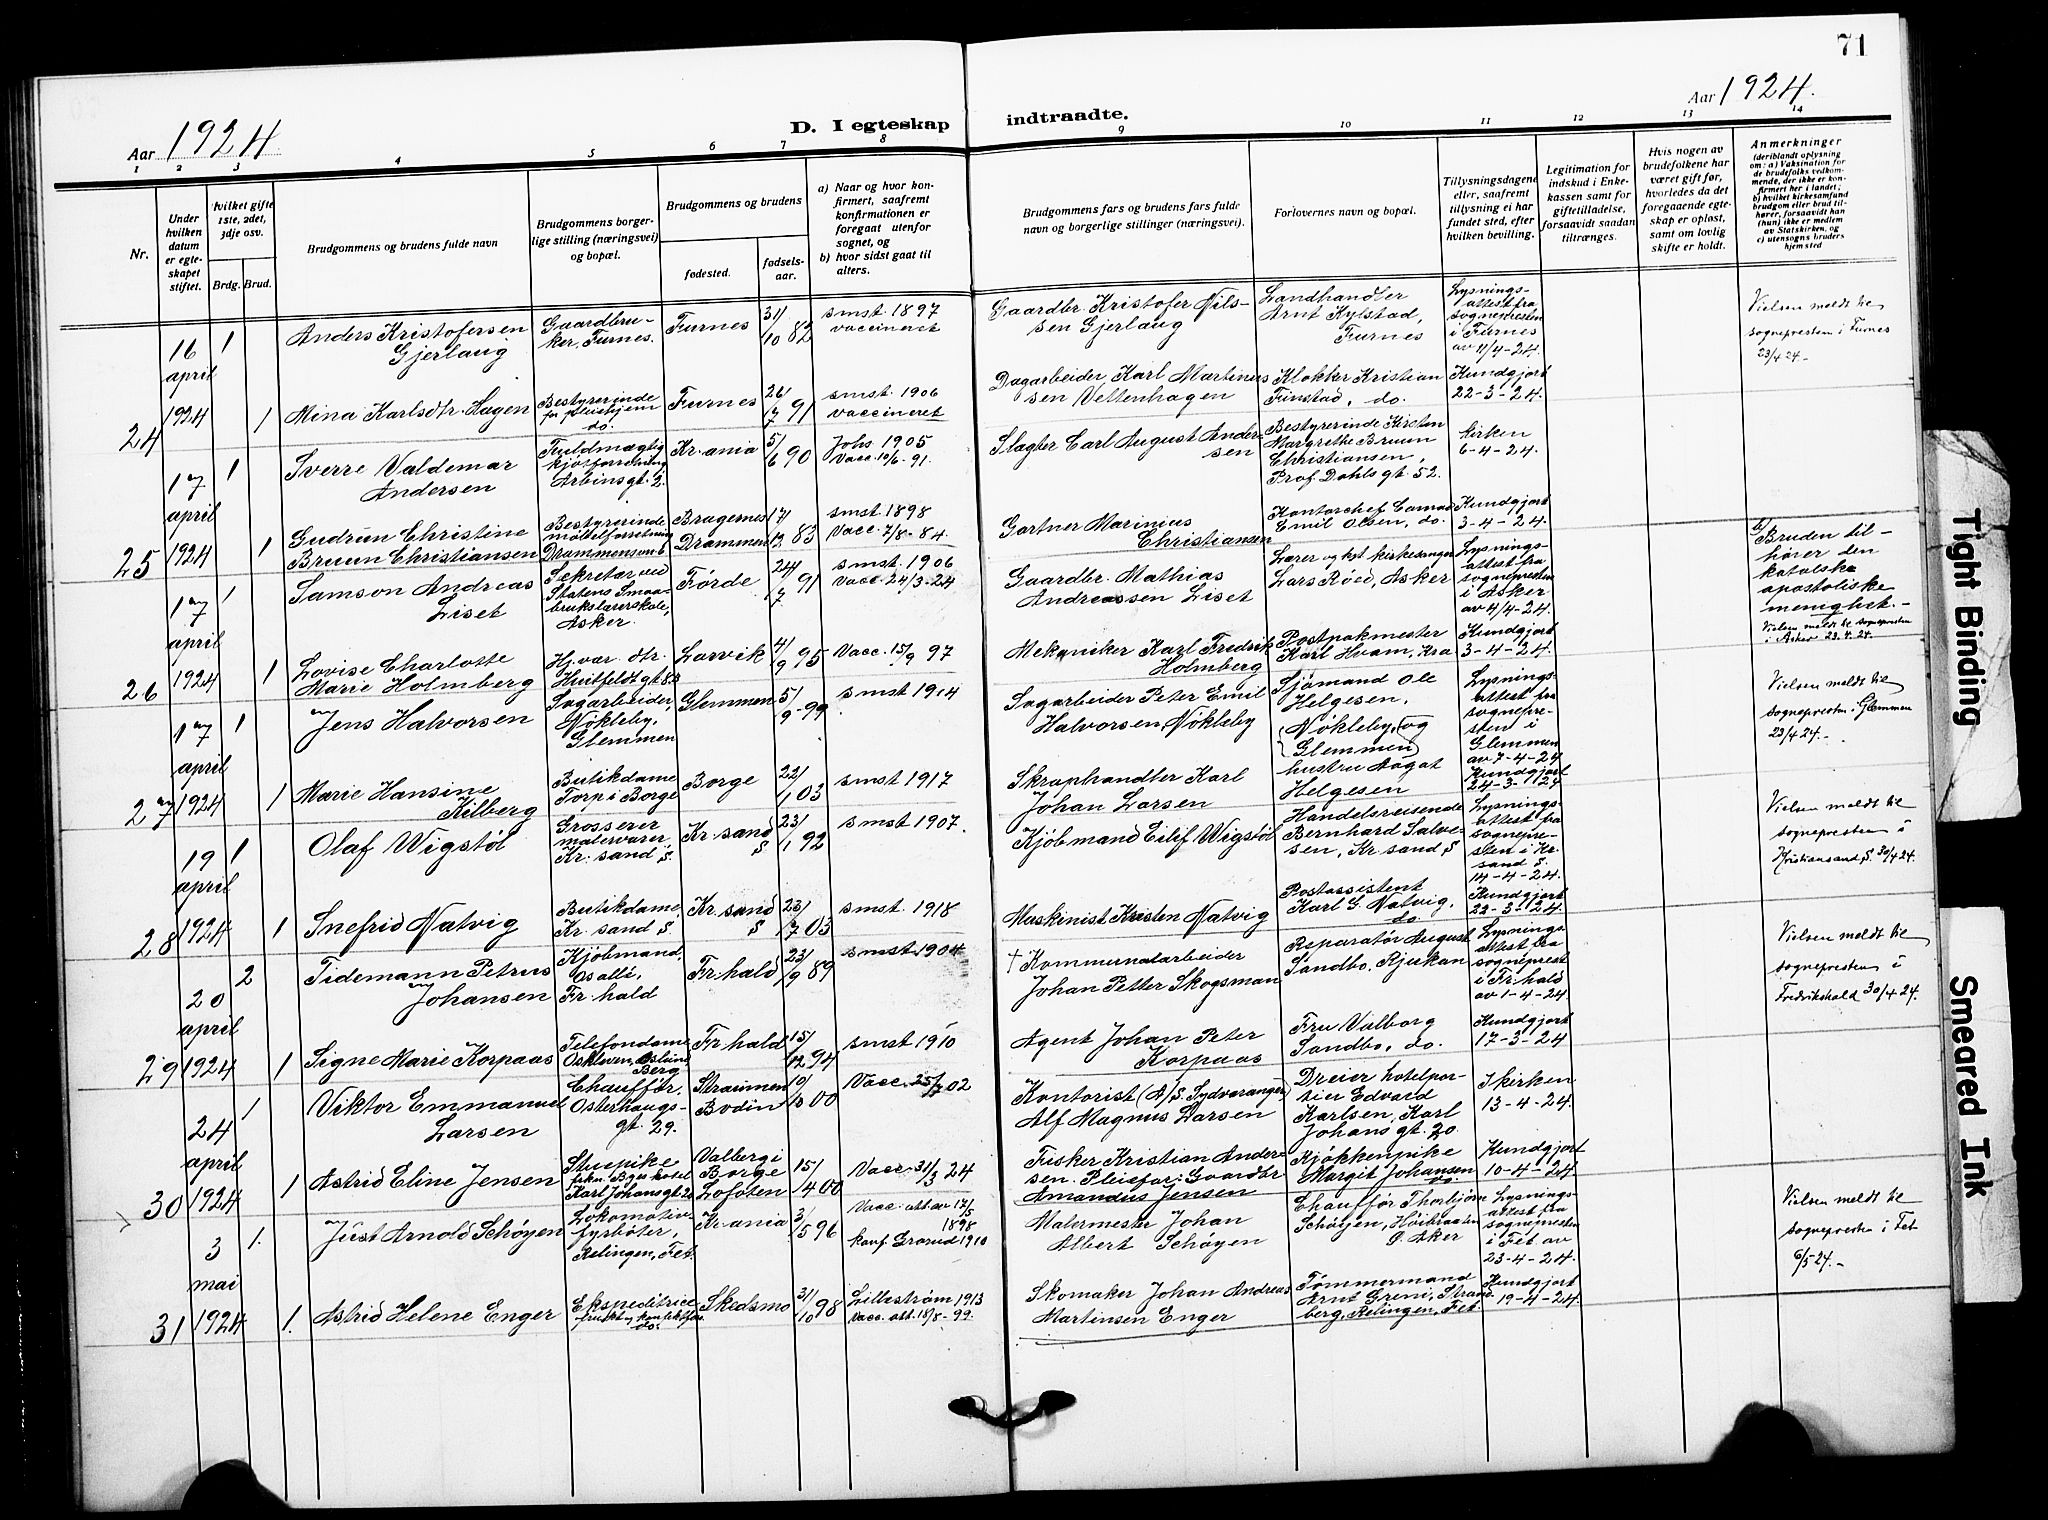 71
Aar 1924.
D. I egteskap
indtraadte.
Aar 1924.
1 2 3 4 5 6 7 8 9 10 11 12 13 14
Nr.
Under hvilken datum er egteskapet stiftet.
Hvilket gifte 1ste, 2det, 3dje osv.
Brdg. Brud.
Brudgommens og brudens fulde navn
Brudgommens borgerlige stilling (næringsvei) og bopæl.
Brudgommens og brudens
fødested.
fødselsaar.
a) Naar og hvor konfirmert, saafremt konfirmationen er foregaat utenfor sognet, og
b) hvor sidst gaat til alters.
Brudgommens fars og brudens fars fulde navn og borgerlige stillinger (næringsvei).
Forlovernes navn og bopæl.
Tillysningsdagene eller, saafremt tillysning ei har fundet sted, efter hvilken bevilling.
Legitimation for indskud i Enkekassen samt for giftetilladelse, forsaavidt saadan tiltrænges.
Hvis nogen av brudefolkene har været gift før, hvorledes da det foregaaende egteskap er opløst, samt om lovlig skifte er holdt.
Anmerkninger
(deriblandt oplysning om: a) Vaksination for de brudefolks vedkommende, der ikke er konfirmert her i landet; b) hvilket kirkesamfund brudgom eller brud tilhører, forsaavidt han (hun) ikke er medlem av Statskirken, og c) utensogns bruders hjemsted
24 16 april 1924
1 Anders Kristofersen Gjerlaug
Gaardbruker, Furnes.
Furnes 31/10 82
smst. 1897 vaccineret
Gaardbr. Kristofer Nilssen Gjerlaug
Landhandler Arnt Kylstad, Furnes
Lysningsattest fra sognepresten i Furnes av 11/4-24.
Vielsen meldt til sognepresten i Furnes 23/4 24.-
1 Mina Karlsdtr. Hagen
Bestyrerinde for pleiehjem do.
Furnes 26/7 91
smst. 1906 vaccineret
Dagarbeider Karl Martinussen Vettenhagen
Klokker Kristian Finstad, do.
Kundgjort 22-3-24.
25 17 april 1924
1 Sverre Valdemar Andersen
Fuldmægtig kjøtforretning Arbinsgt. 2.
Kr.ania 5/6 90
Johs 1905 Vacc. 10/6-91.
Slagter Carl August Andersen
Bestyrerinde Kirsten Margrethe Bruun Christiansen, Prof. Dahls gt. 52.
kirken 6-4-24.
1 Gudrun Christine Bruun Christiansen
Bestyrerinde møbelforretning Drammensv. 6
Bragernes Drammen 17/12 83
smst 1898 Vacc. 7/8-84.
Gartner Marinius Christiansen
Kontorchef Emil Olsen, do.
Kundgjort 3-4-24.
26 17 april 1924
1 Samson Andreas Liset
Sekretær ved Statens Smaabrukslærerskole, Asker.
Førde 24/7 91
smst. 1906 Vacc. 24/3-24
Gaardbr. Mathias Andreassen Liset
Lærer og kst. kirkesanger Lars Røed, Asker
Lysningsattest fra sognepresten i Asker av 4/4-24.
b) Bruden tilhører den katolske apostoliske menighet.-
Vielsen meldt til sognepresten i Asker 23.4.24.
1 Lovise Charlotte Marie Holmberg
Hj.vær. dtr. Huitfeldt gt 8
Larvik 4/9 95
Vacc. 15/9 97
Mekaniker Karl Fredrik Holmberg
Postpakmester Karl Hvam, Kra
Kundgjort 3-4-24.
27 17 april 1924
1 Jens Halvorsen
Sagarbeider, Nøkleby, Glemmen
Glemmen 5/9-99
smst 1914
Sagarbeider Peter Emil Halvorsen Nøkleby
Sjømand Ole Helgesen, Nøkleby, og Glemmen
Lysningsattest fra sognepresten i Glemmen av 7-4-24
Vielsen meldt til sognepresten i Glemmen 23/4 24.-
1 Marie Hansine Kilberg
Butikdame Torp i Borge
Borge 22/1 03
smst 1917
Skraphandler Karl Johan Larsen
hustru Aagot Helgesen
Kundgjort 24-3-1924
28 19 april 1924
1 Olaf Wigstøl
Grosserer malervarer, Kr.sand S.
Kr.sand S 23/1 92
smst 1907.
Kjøbmand Eilif Wigstøl
Handelsreisende Bernhard Salvesen, Kr.sand S
Lysningsattest fra sognepresten i Kr.sand S. 14-4-24.
Vielsen meldt til sognepresten i Kristiansand S. 30/4 24.
1 Snefrid Natvig
Butikdame, Kr.sand S.
Kr.sand S 23/7 03
smst. 1918
Maskinist Kristen Natvig
Postassistent Karl G. Natvig, do.
Kundgjort 22-3-24.
29 20 april 1924
2 Tidemann Petrus Johansen
Kjøbmand, Os allé, Fr.hald
Fr.hald 23/9 89
smst 1904
† Kommunalarbeider Johan Petter Skogsman
Reparatør August Sandbo, Rjukan
Lysningsattest fra sogneprest i Fr.hald av 1-4-24.
Vielsen meldt til sognepresten i Fredrikshald 30/4 24.
1 Signe Marie Korpaas
Telefondame Berg
Fr.hald 15/12 94
smst 1910
Agent Johan Peter Korpaas
Fru Valborg Sandbo, do.
Kundgjort 17-3-24
30 24 april 1924
1 Viktor Emmanuel Larsen
Chauffør. Osterhaugsgt. 29.
Straumen Bodin 10/10 00
Vacc. 25/7 02
Kontorist (A/S. Sydvaranger) Alf Magnus Larsen
Dreier hotelportier Edvard Karlsen, Karl Johans gt. 20.
I kirken 13-4-24.
1 Astrid Eline Jensen
Stuepike frkn. Byes hotel Karl Johans gt 20
Valberg i Borge Lofoten 15/4 00
Vacc. 31/3 24
Fisker Kristian Andersen. Pleiefar: Gaardbr. Amandus Jensen
Kjøkkenpike Margit Johansen do.
Kundgjort 10-4-24.
31 3 mai 1924
1. Just Arnold Schøyen
Lokomotivfyrbøter, Rælingen, Fet.
Kr.ania 3/5 96
Vacc. att. av 17/5 1898 konf. Grorud 1910
Malermester Johan Albert Schøyen
Chauffør Thorbjørn Schøyen, Høibraaten Ø. Aker
Lysningsattest fra sognepresten i Fet av 23-4-24.
Vielsen meldt til sognepresten i Fet 6/5 24.-
1. Astrid Helene Enger
Ekspeditrice frukt og konfektforr. do.
Skedsmo 31/10 98
Lillestrøm 1913 Vacc. att. 18/8-99.
Skomaker Johan Andreas Martinsen Enger
Tømmermand Arnt Greni, Strandberg, Rælingen, Fet
Kundgjort 19-4-24.
Tight Binding
Smeared Ink